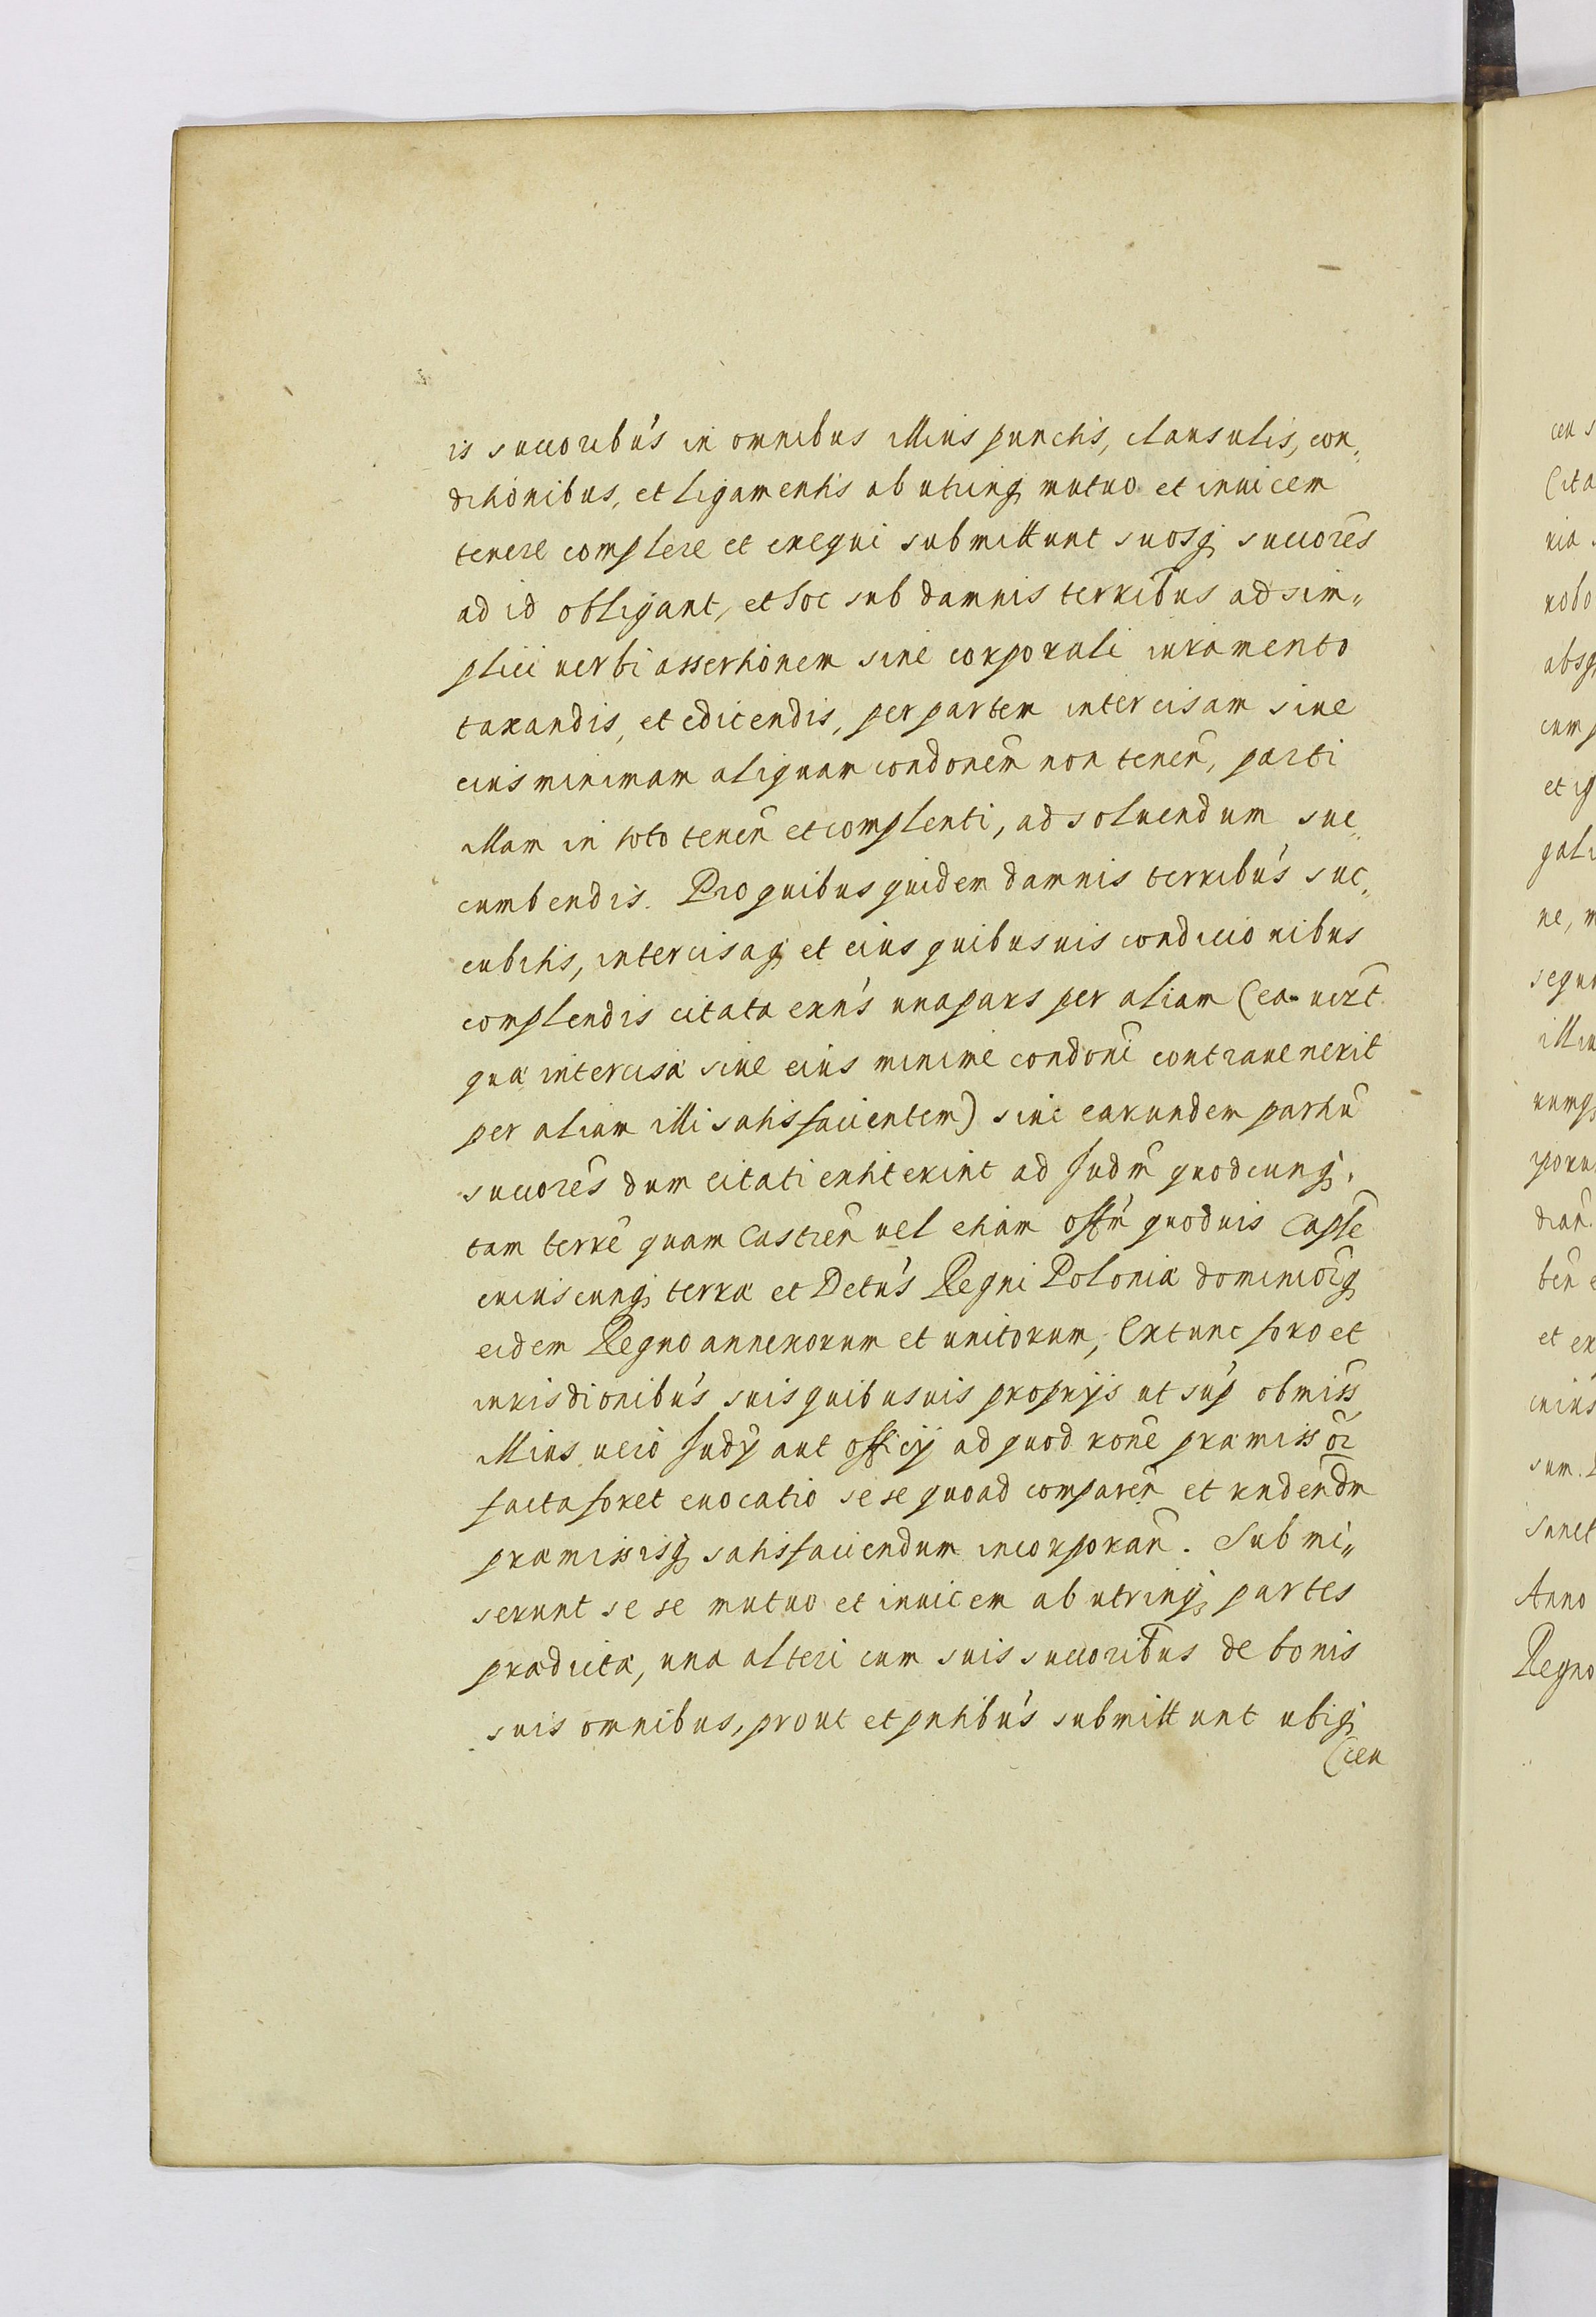 is succoribus in omnibus illius punctis, clausulis, con„
ditionibus, et ligamentis ab utrinq; mutuo et inuicem
tenere complere et exequi submittunt suosq; succores
ad id obligant, et hoc sub damnis terribus ad sim„
plici uerbi assertionem sine corporali iuramento
taxandis, et edicendis, per partem intercisam siue
eius minimam aliquam condonem non tenen, parti
illam in toto tenen et complenti, ad soluendum suc„
cumbendis. Pro quibus quidem damnis terribus suc„
cubitis, intercisaq; et eius quibusuis condicionibus
complendis citata exns una pars per aliam (ea uizt
quæ intercisæ siue eius minime condoni contrauenerit
per aliam illi satisfacientem) siue earundem partiu
succores dum citati extiterint ad Judm quodcunq;
tam terre quam Castren uel etiam offm quoduis Capse
cuiuscunq; terræ et Detus Regni Poloniæ dominiorq;
eidem Regno annexorum et unitorum, Extunc foro et
iurisdionibus suis quibusuis proprijs ut sup obmiss
illius uero Judy aut officij ad quod rone præmissor
facta foret euocatio sese quoad comparen et rndendm
præmissisq; satisfaciendum incorporan. Submi„
serunt sese mutuo et inuicem ab utrinq; partes
prædictæ, una alteri cum suis succoribus de bonis
suis omnibus, prout et pntibus submittunt ubiq;
(ceu
ceu s
(cita
ria
robo
absq
cum p
et ip
gali
ne, m
sequ
illiu
rumq;
poru
dian
ben e
et ex
cuius
sum.
Sanct
Anno
Regno